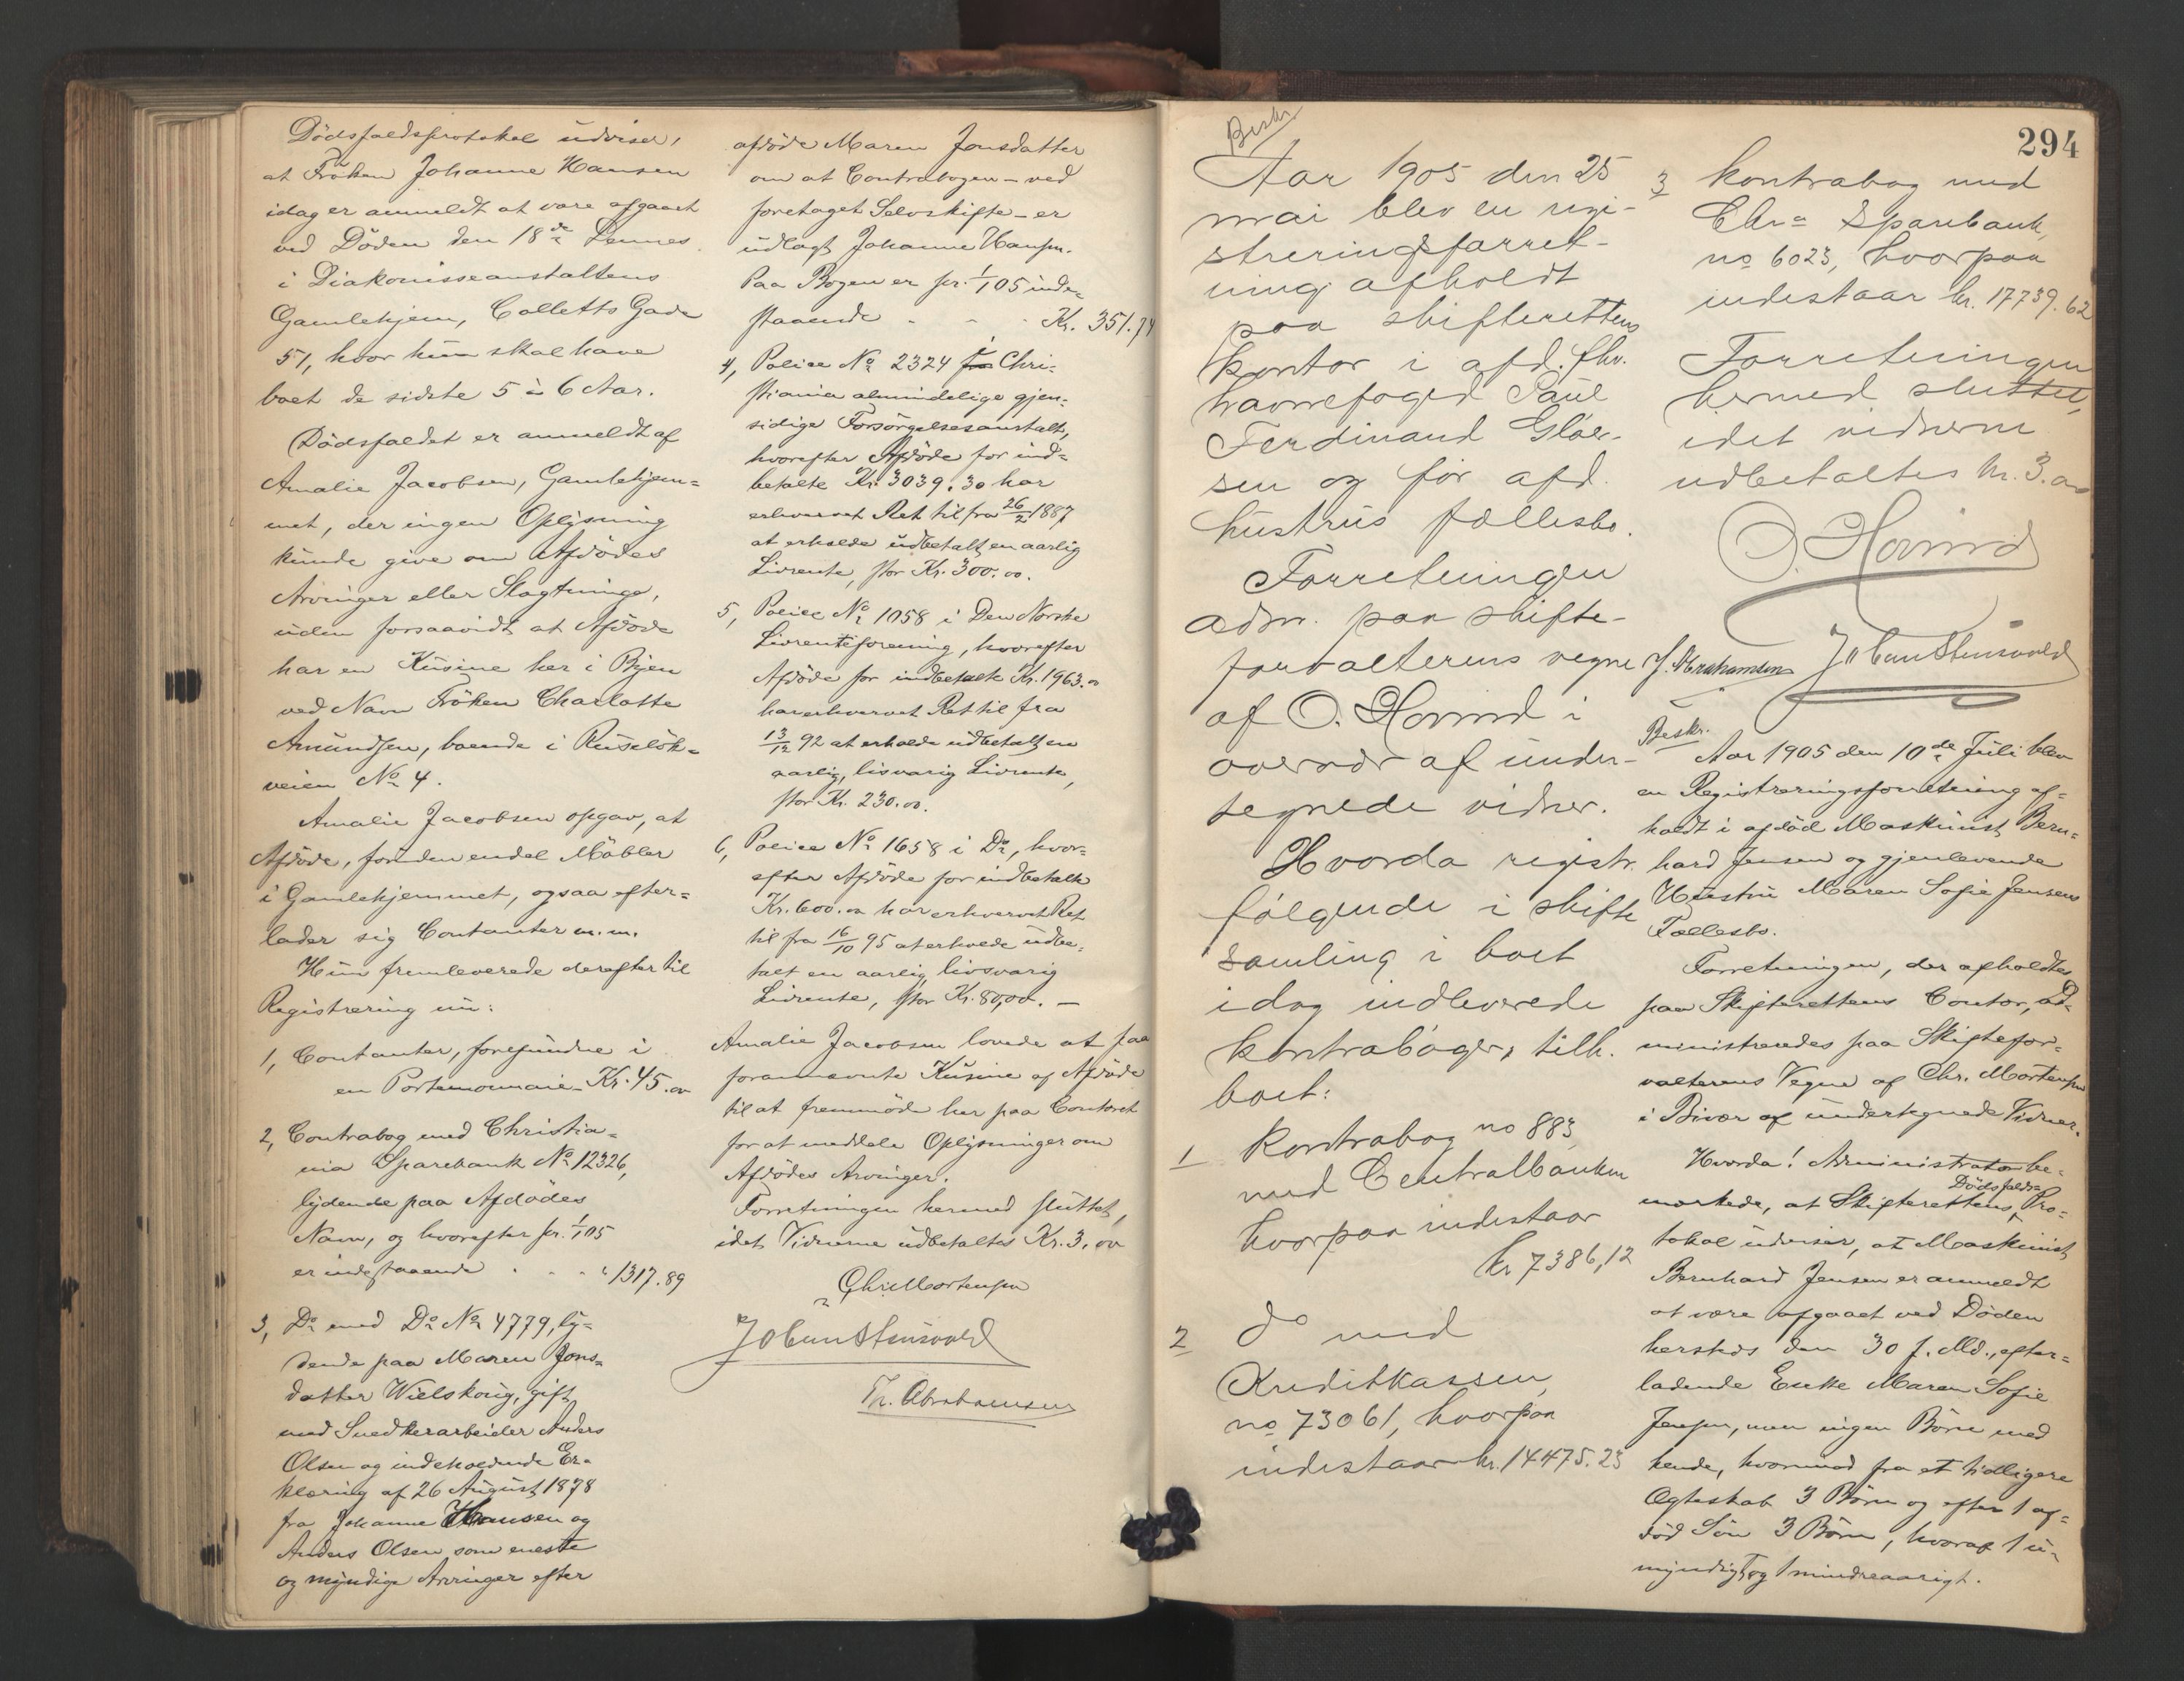 Dödsfaldsprotokol udviser,
at Fröken Johanne Hansen
idag er anmeldt at være afgaaet
ved Döden den 18de dennes
i Diakonisseanstaltens
Gamlehjem, Colletts Gade
51, hvor hun skal have
boet de sidste 5 à 6 Aar.
Dödsfaldet er anmeldt af
Amalie Jacobsen, Gamlehjem=
met, der ingen Oplysning
kunde give om Afdödes
Arvinger eller Slægtninge,
uden forsaavidt at Afdöde
har en Kusine her i Byen
ved Navn Fröken Charlotte
Amundsen, boende i Ruselök=
veien No 4.
Amalie Jacobsen opgav, at
Afdöde, foruden endel Möbler
i Gamlehjemmet, ogsaa efter=
lader sig Contanter m.m.
Hun fremleverede derefter til
Registrering nu:
1, Contanter, forefundne i
en Portemonnaie - Kr. 45.00
2, Contrabog med Christia=
nia Sparebank No 12326,
lydende paa Afdödes
Navn, og hvorefter pr. 1/1 05
er indestaaende . . . " 1317.89
3, Do med Do No 4779, ly=
dende paa Maren Jons=
datter Wielskoug, gift
med Snedkerarbeider Anders
Olsen og indeholdende Er=
klæring af 26 August 1878
fra Johanne Hansen og
Anders Olsen som eneste
og myndige Arvinger efter
afdöde Maren Jonsdatter
om at Contrabogen - ved
foretaget Selvskifte - er
udlagt Johanne Hansen.
Paa Bogen er pr. 1/1 05 inde=
staaende - - - Kr. 351.74
4, Police No 2324 i Chri=
stiania almindelige gjen=
sidige Forsörgelsesanstalt,
hvorefter Afdöde for ind=
betalte Kr. 3039.30 har
erhvervet Ret til fra 26/2 1887
at erholde udbetalt en aarlig
Livrente, stor Kr. 300.00.
5, Police No 1058 i Den Norske
Livrenteforening, hvorefter
Afdöde for indbetalte Kr. 1963.00
har erhvervet Ret til fra
13/12 92 at erholde udbetalt en
aarlig, livsvarig Livrente,
stor Kr. 230.00.
6, Police No 1658 i Do, hvor=
efter Afdöde for indbetalte
Kr. 600.00 har erhvervet Ret
til fra 16/10 95 at erholde udbe=
talt en aarlig livsvarig
Livrente, stor Kr. 80,00. -
Amalie Jacobsen lovede at faa
forannævnte Kusine af Afdöde
til at fremmöde her paa Contoret
for at meddele Oplysninger om
Afdödes Arvinger.
Forretningen hermed sluttet,
idet Vidnerne udbetaltes Kr. 3.00
Chr. Mortensen
Johan Stensvold
Th. Abrahamsen
294
Beskr.
Aar 1905 den 25
mai blev en regi-
streringsforret-
ning afholdt
paa skifterettens
kontor i afd. fhv.
havnefoged Paul
Ferdinand Gløer-
sen og før afd.
hustrus fællesbo.
Forretningen
adm. paa skifte-
forvalterens vegne
af O. Hovind i
overvær af under-
tegnede vidner.
Hvorda registr.
følgende i skifte
samling i boet
idag indleverede
kontrabøger, tilh.
boet:
1 Kontrabog no 883
med Centralbanken
hvorpaa indestaar
kr 7386,12
2 do med
Kreditkassen,
no 73061, hvorpaa
indestaar kr. 14475.23
3 kontrabog med
Chra Sparebank,
no 6023, hvorpaa
indestaar kr. 17739.62
Forretningen
hermed sluttet,
idet vidnerne
udbetaltes kr. 3.00
O. Hovind
J. Abrahamsen Johan Stensvold
Beskr.
Aar 1905 den 10de Juli blev
en Registreringsforretning af=
holdt i afdöd Maskinist Bern=
hard Jensen og gjenlevende
Hustru Maren Sofie Jensens
Fællesbo.
Forretningen, der afholdtes
paa Skifterettens Contor, ad=
ministreredes paa Skiftefor=
valterens Vegne af Chr. Mortensen
i Bivær af undertegnede Vidner.
Hvorda! Administrator be=
mærkede, at Skifterettens Dödsfalds= Pro=
tokol udviser, at Maskinist
Bernhard Jensen er anmeldt
at være afgaaet ved Döden
hersteds den 30 f. Md., efter=
ladende Enke Maren Sofie
Jensen, men ingen Börn med
hende, hvorimod fra et tidligere
Ægteskab 3 Börn og efter 1 af=
död Sön 3 Börn, hvoraf 1 u=
myndigt og 1 mindreaarigt.